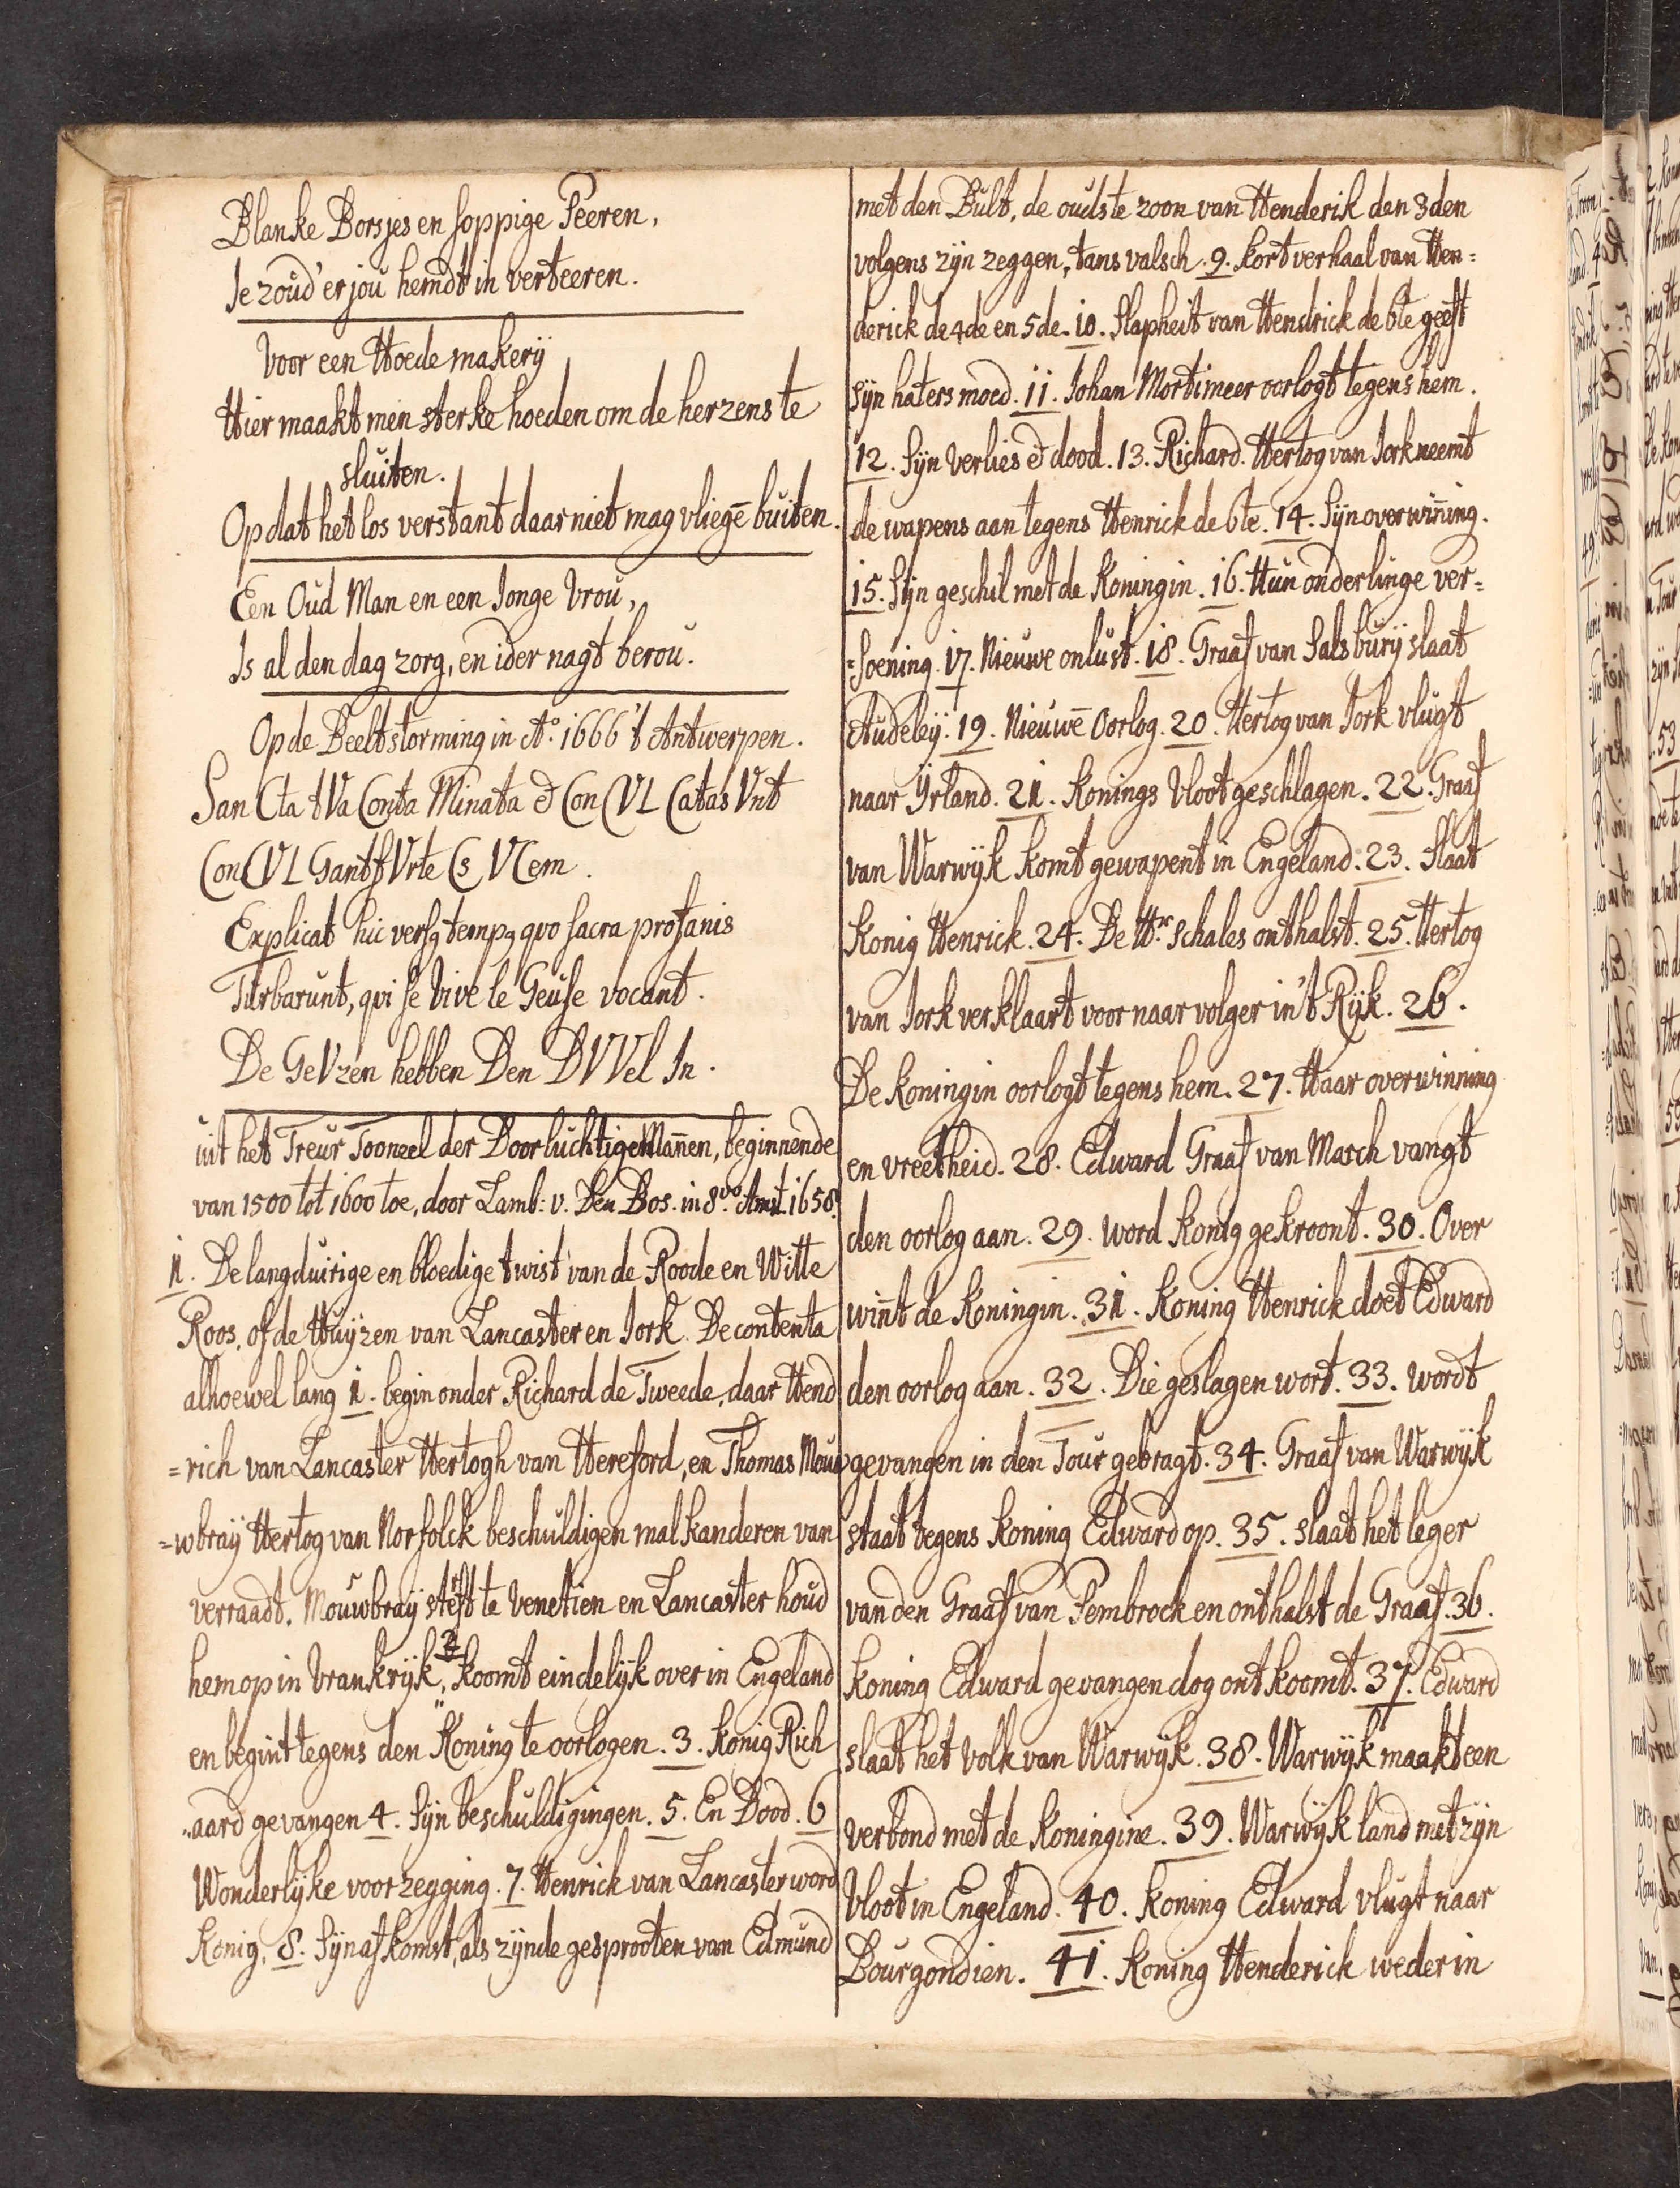 Blanke Borsjes en soppige Peeren,
Je zoud' er jou hemdt in verteeren.
Voor een Hoedemakerij
Hier maakt men sterke hoeden om de herzens te
sluiten.
Op dat het los verstant daar niet mag vliegē buiten.
Een Oud Man en een Jonge Vrou,
Is al den dag zorg, en ider nagt berou.
Op de Beeltstorming in Ao. 1666 't Antwerpen.
SanCta tVa Conta Minata & ConCVLCatas Vnt
ConCVLGant fVrteCs VCem.
Explicat hic versq tempq qvo sacra profanis
Turbarunt, qvi se Vive le Geuse vocant.
De GeVzen hebben Den DVVel In.
uit het Treur Tooneel der Doorluchtige Mañen, beginnende
van 1500 tot 1600 toe, door Lamb: v. Den Bos. in 8vo. Amst. 1658.
1. De langduirige en bloedige twist van de Roode en Witte
Roos, of de Huijzen van Lancaster en Jork. De contenta
alhoewel lang 1. begin onder Richard de Tweede, daar Hend
=rich van Lancaster Hertogh van Hereford, en Thomas Mou
=wbraij Hertog van Norfolck beschuldigen malkanderen van
verraadt. Mouwbraij sterft te Venetien en Lancaster houd
hem op in Vrankrijk, 2 koomt eindelijk over in Engeland
en begint tegens den Koning te oorlogen. 3. Konig Rich
"aard gevangen 4. Sijn beschuldigingen. 5. En Dood. 6
Wonderlijke voorzegging. 7. Henrick van Lancaster word
Konig. 8. Sijn afkomst, als zijnde gesprooten van Edmund
met den Bult, de oudste zoon van Henderik den 3den
volgens zijn zeggen, tans valsch. 9. kort verhaal van Hen=
derick de 4de en 5de. 10. Slapheit van Hendrick de 6te geeft
sijn haters moed. 11. Johan Mortimeer oorlogt tegens hem.
12. Sijn verlies & dood. 13. Richard Hertog van Jork neemt
de wapens aan tegens Henrick de 6te. 14. Sijn overwiñing.
15. Sijn geschil met de Koningin. 16. Hun onderlinge ver=
=soening. 17. Nieuwe onlust. 18. Graaf van Salsburij slaat
Audeleij. 19. Nieuwē Oorlog. 20. Hertog van Jork vlugt
naar Yrland. 21. Konings Vloot geschlagen. 22. Graaf
van Warwijk komt gewapent in Engeland. 23. Slaat
Konig Henrick. 24. De Hr. Schales onthalst. 25. Hertog
van Jork verklaart voor naarvolger in 't Rijk. 26.
De Koningin oorlogt tegens hem. 27. Haar overwinning
en vreetheid. 28. Edward Graaf van March vangt
den oorlog aan. 29. word Konig gekroont. 30. Over
wiñt de Koningin. 31. Koning Henrick doet Edward
den oorlog aan. 32. Die geslagen wort. 33. wordt
gevangen in den Tour gebragt. 34. Graaf van Warwijk
staat tegens Koning Edward op. 35. slaat het leger
van den Graaf van Pembrock en onthalst de Graaf. 36.
Koning Edward gevangen dog ontkoomt. 37. Edward
slaat het volk van Warwijk. 38. Warwijk maakt een
verbond met de Koningine. 39. Warwijk land met zijn
Vloot in Engeland. 40. Koning Edward vlugt naar
Bourgondien. 41. Koning Henderick weder in